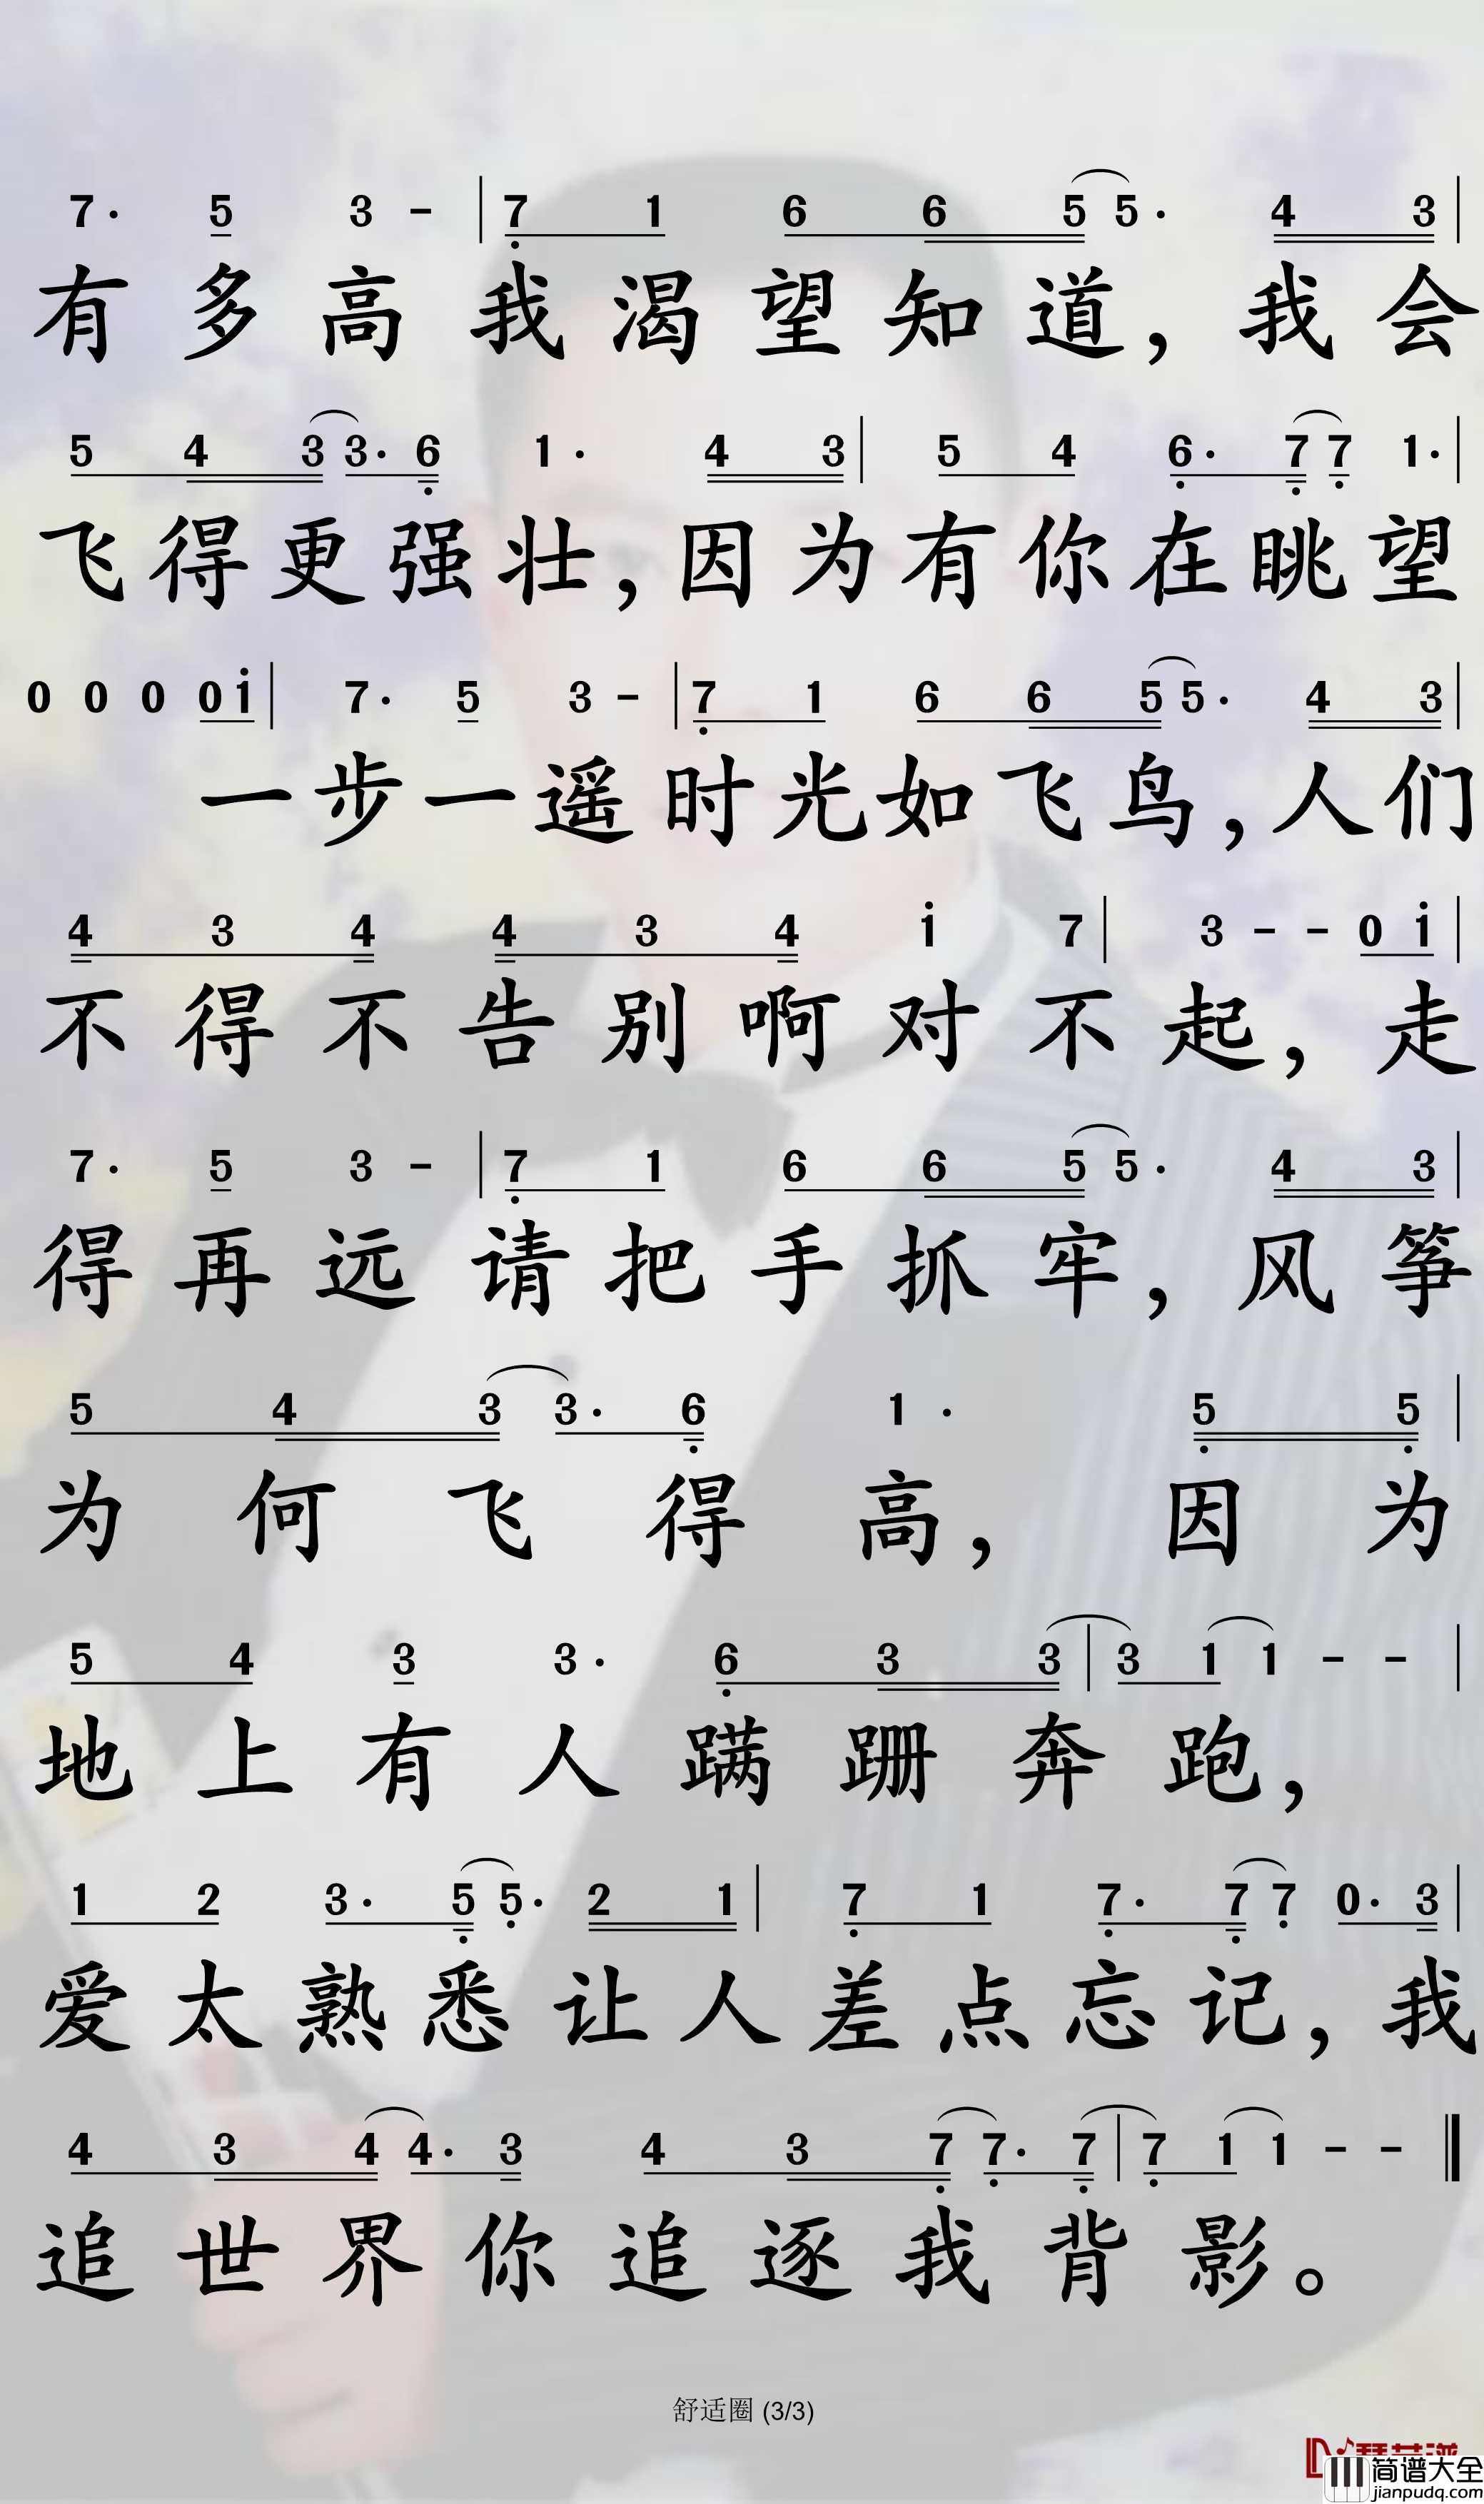 7· 5 3 - | 7 1 6 6 5 5· 4 3 |
有多高我渴望知道，我会
5 4 3 3· 6 1· 4 3 | 5 4 6· 7 7 1· |
飞得更强壮，因为有你在眺望
0 0 0 0 1 | 7· 5 3 - | 7 1 6 6 5 5· 4 3 |
一步一遥时光如飞鸟，人们
4 3 4 4 3 4 1 7 | 3 - - 0 1 |
不得不告别啊对不起，走
7· 5 3 - | 7 1 6 6 5 5· 4 3 |
得再远请把手抓牢，风筝
5 4 3 3· 6 1· 5 5 |
为何飞得高，因为
5 4 3 3· 6 3 3 | 3 1 1 - - |
地上有人蹒跚奔跑，
1 2 3· 5 5· 2 1 | 7 1 7· 7 7 0· 3 |
爱太熟悉让人差点忘记，我
4 3 4 4· 3 4 3 7 7· 7 | 7 1 1 - - ‖
追世界你追逐我背影。
舒适圈 (3/3)
简谱大全
jianpudq.com